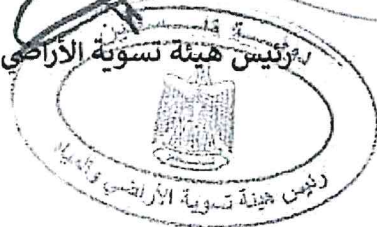 رئيس هيئة تسوية الأراضي
دولة فلسطين
رئيس هيئة تسوية الأراضي والمياه